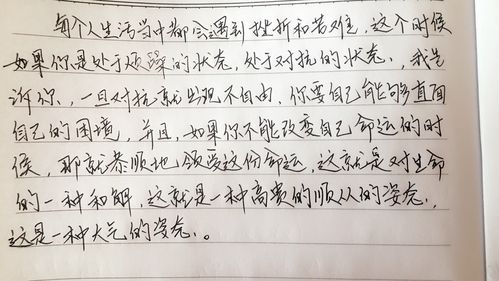 每个人生活当中都会遇到挫折和苦难，这个时候
如果你是处于烦躁的状态，处于对抗的状态，我告
诉你，一旦对抗就出现不自由，你要自己能够直面
自己的困境，并且，如果你不能改变自己命运的时
候，那就恭顺地领受这份命运，这就是对生命
的一种和解，这就是一种高贵的顺从的姿态，
这是一种大气的姿态。